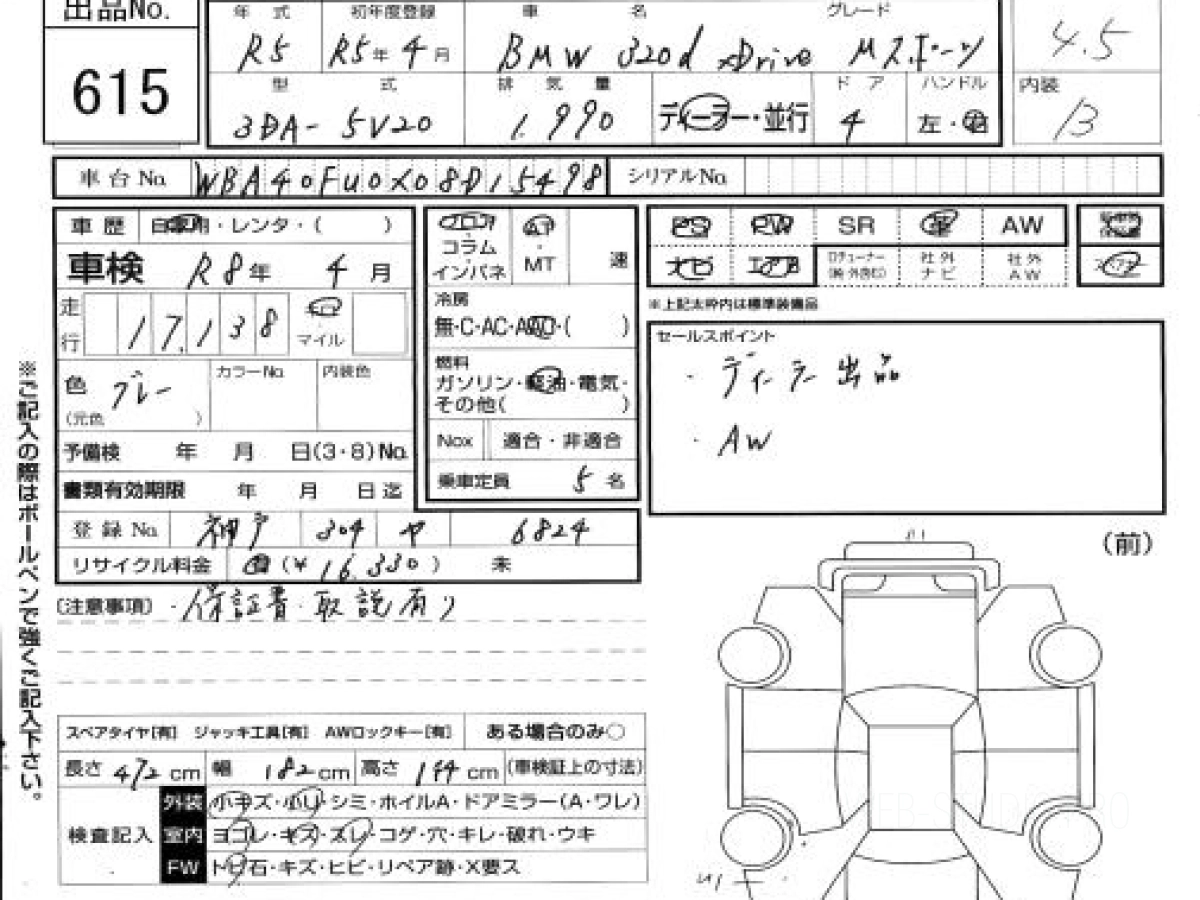 出品No.
615
年式 初年度登録 車名 グレード
R5 R5年4月 BMW 320d xDrive Mスポーツ
4.5
型式 排気量 ドア ハンドル
3DA-5V20 1.990 ディーラー・並行 4 左・右
内装
B
車台No. WBA40FU0X08D15498 シリアルNo.
車歴 自家用・レンタ・( )
車検 R8年 4月
走行 17,138 マイル
色 グレー (元色 ) カラーNo. 内装色
予備検 年 月 日(3・8)No.
書類有効期限 年 月 日迄
登録No. 神戸 304 6824
リサイクル料金 (¥16.330) 未
フロア
コラム
インパネ
AT・MT 速
冷房
無・C・AC・AAC・( )
燃料
ガソリン・軽油・電気・
その他( )
Nox 適合・非適合
乗車定員 5名
PS PW SR 革 AW
ナビ エアB ロチューナー(純外含む) 社外ナビ 社外AW
※上記太枠内は標準装備品
セールスポイント
・ディーラー出品
・AW
(注意事項)・保証書・取説有り
※ご記入の際はボールペンで強くご記入下さい。
スペアタイヤ[有] ジャッキ工具[有] AWロックキー[有] ある場合のみ○
長さ 472cm 幅 182cm 高さ 144cm (車検証上の寸法)
検査記入
外装 小キズ・小凹・シミ・ホイルA・ドアミラー(A・ワレ)
室内 ヨゴレ・キズ・スレ・コゲ・穴・キレ・破れ・ウキ
FW トビ石・キズ・ヒビ・リペア跡・X要ス
(前)